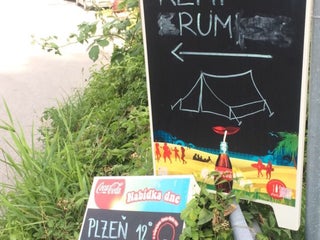 KEMP
RUM
Coca-Cola
Nabídka dne
PLZEŇ 12°